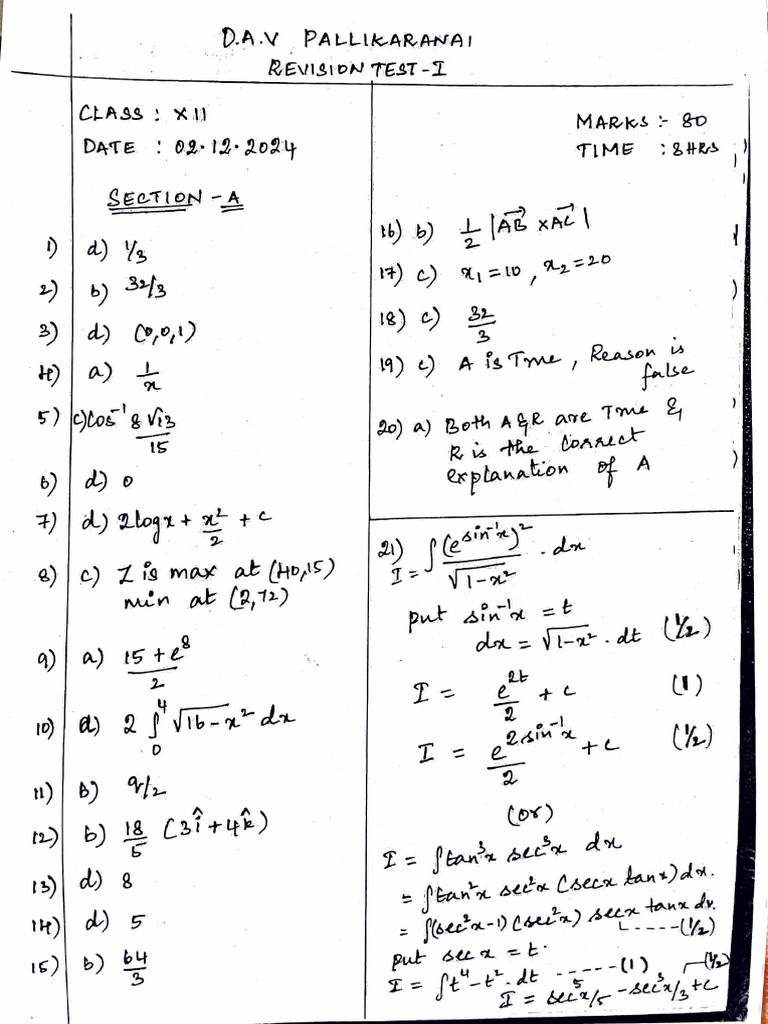 D.A.V PALLIKARANAI
REVISION TEST-I
CLASS : XII
DATE : 02.12.2024
MARKS :- 80
TIME : 3HRS
SECTION - A
1) d) 1/3
2) b) 32/3
3) d) (0,0,1)
4) a) 1/x
5) c) cos⁻¹ 8√13/15
6) d) 0
7) d) 2logx + x²/2 + c
8) c) Z is max at (40,15)
min at (2,72)
9) a) (15 + e⁸)/2
10) d) 2 ∫₀⁴ √16-x² dx
11) b) 9/2
12) b) 18/5 (3î + 4k̂)
13) d) 8
14) d) 5
15) b) 64/3
16) b) 1/2 |AB⃗ × AC⃗|
17) c) x₁ = 10, x₂ = 20
18) c) 32/3
19) c) A is True, Reason is
false
20) a) Both A & R are True &
R is the Correct
explanation of A
21) I = ∫ (e^sin⁻¹x)²/√1-x² . dx
put sin⁻¹x = t
dx = √1-x² . dt (1/2)
I = e^2t/2 + c (1)
I = e^2sin⁻¹x/2 + c (1/2)
(or)
I = ∫tan³x sec³x dx
= ∫tan²x sec²x (secx tanx) dx.
= ∫(sec²x-1) (sec²x) secx tanx dx.
----(1/2)
put sec x = t.
I = ∫t⁴-t². dt -----(1) (1/2)
I = sec⁵x/5 - sec³x/3 + c